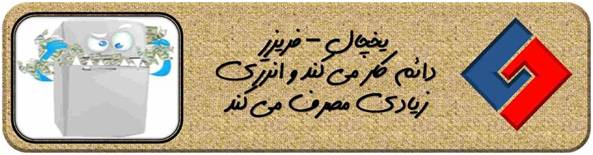 یخچال - فریزر
دائم کار می کند و انرژی
زیادی مصرف می کند